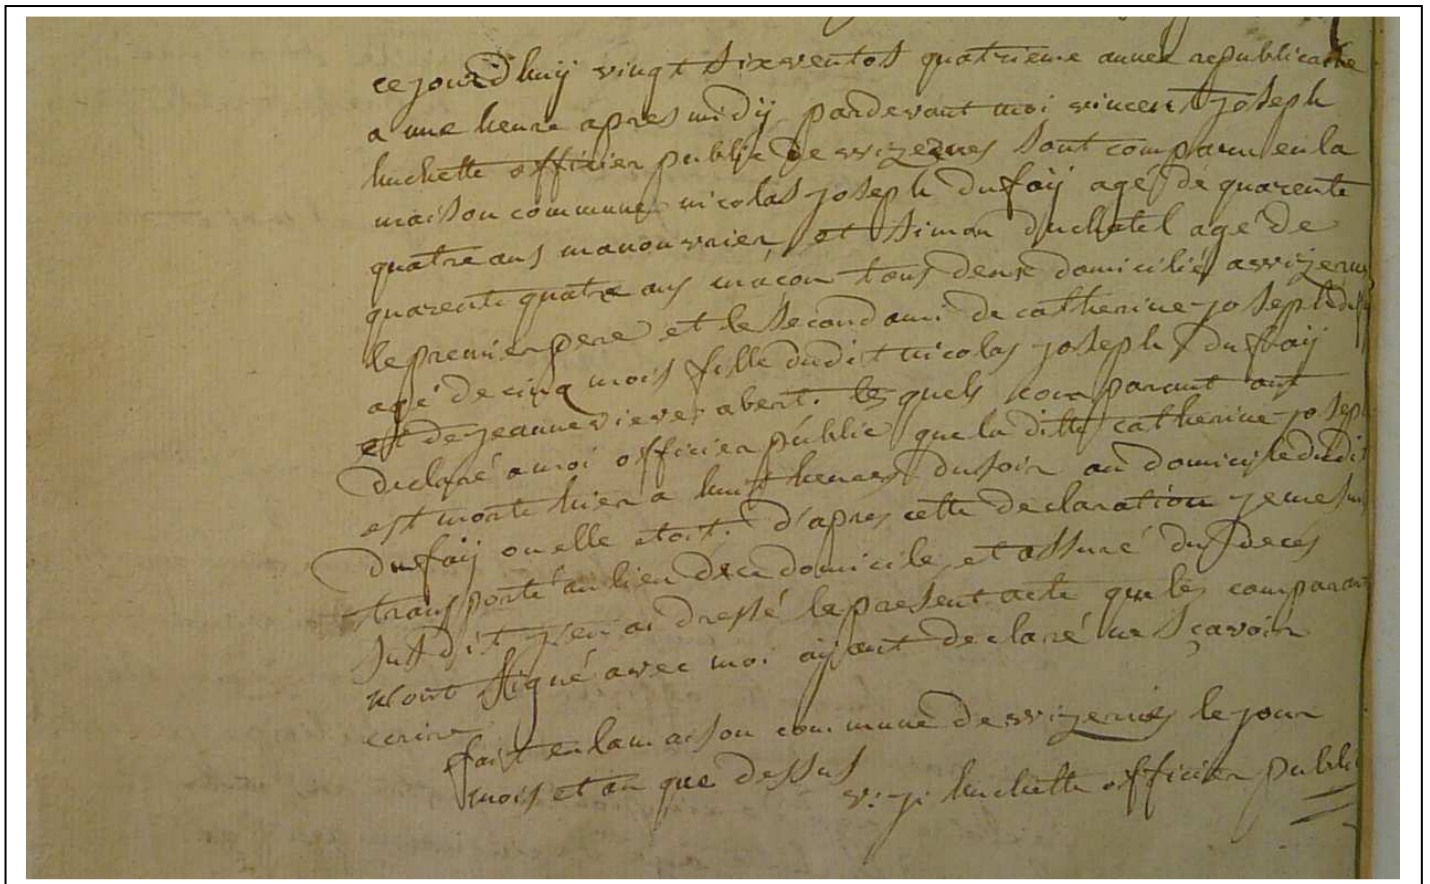 cejourd'huij vingt sixventos quatrieme année republicaine
a une heure apres midij pardevant moi vincent joseph
huchette officier public de wizernes sont comparu en la
maison commune nicolas joseph dufaij agé de quarente
quatre ans manouvrier, et simon duchatel agé de
quarente quatre ans macon tous deux domicilié a wizernes
le premier pere et le second ami de catherine joseph
agé de cinq mois fille dudit nicolas joseph dufaij
et de jeanne abert. lesquels comparant ont
declaré a moi officier public que la ditte catherine joseph
est morte hier a huit heures du soir au domicile dudit
dufaij ou elle etoit. d'apres cette declaration je me suis
transporté au lieu de ce domicile, et assuré du deces
susdit j'en ai dressé le present acte que les comparant
n'ont signé avec moi aijant declaré ne sçavoir
ecrire
fait en la maison commune de wizernes le jour
mois et an que dessus
v. j. huchette officier public